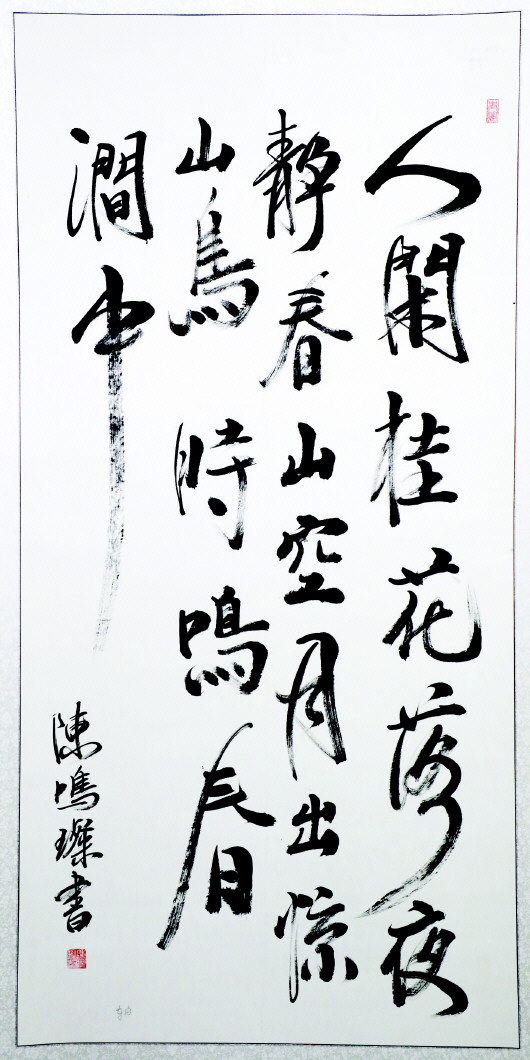 人閑桂花落夜
静春山空月出惊
山鳥時鳴春
澗中
陳鳴璨書